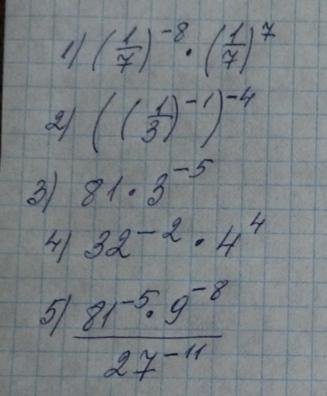 1) (1/7)^-8 · (1/7)^7
2) ((1/3)^-1)^-4
3) 81 · 3^-5
4) 32^-2 · 4^4
5) 81^-5 · 9^-8
27^-11